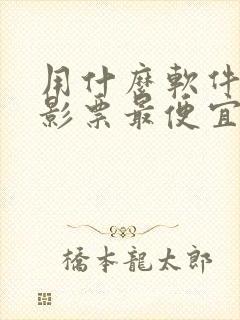 用什麼軟件
影票最便宜
橋本龍太郎